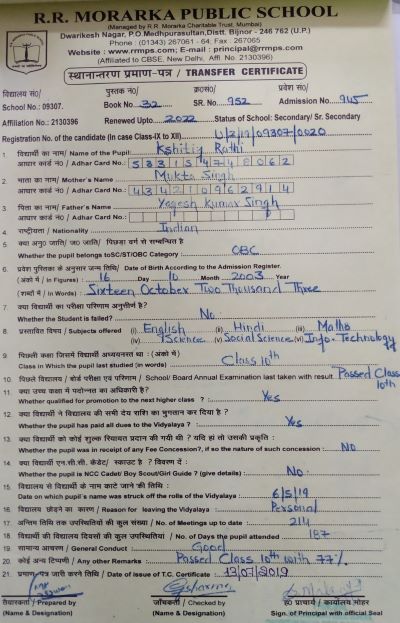 R.R. MORARKA PUBLIC SCHOOL
(Managed by R.R. Morarka Charitable Trust, Mumbai)
Dwarikesh Nagar, P.O.Medhpurasultan,Distt. Bijnor - 246 762 (U.P.)
Phone : (01343) 267061 - 64; Fax : 267065
Website : www.rrmps.com; E-mail : principal@rrmps.com
(Affiliated to CBSE, New Delhi, Affi. No. 2130396)
स्थानान्तरण प्रमाण-पत्र / TRANSFER CERTIFICATE
विद्यालय सं0/ पुस्तक सं0/ क्र0सं0/ प्रवेश सं0/
School No.: 09307. Book No.: 32 SR. No.: 952 Admission No.: 945
Affiliation No.: 2130396 Renewed Upto.: 2022 Status of School: Secondary/ Sr. Secondary
Registration No. of the candidate (in Case-IX to XII) U/2/19/09307/0020
1. विद्यार्थी का नाम/ Name of the Pupil: Kshitiz Rathi
आधार कार्ड नं0 / Adhar Card No.:
2. माता का नाम/ Mother's Name Mukta Singh
आधार कार्ड नं0 / Adhar Card No.:
3. पिता का नाम/ Father's Name Yogesh Kumar Singh
आधार कार्ड नं0 / Adhar Card No.:
4. राष्ट्रीयता / Nationality Indian
5. क्या अनु0 जाति/ ज0 जाति/ पिछड़ा वर्ग से सम्बन्धित है
Whether the pupil belongs toSC/ST/OBC Category : OBC
6. प्रवेश पुस्तिका के अनुसार जन्म तिथि/ Date of Birth According to the Admission Register.
(अंको में / in Figures) : 16 Day 10 Month 2003 Year
(शब्दों में / in Words) : Sixteen October Two Thousand Three
7. क्या विद्यार्थी का परीक्षा परिणाम अनुत्तीर्ण है?
Whether the Student is failed? No
8. प्रस्तावित विषय / Subjects offered (i). English (ii). Hindi (iii). Maths
(iv). Science (v) Social Science (vi) Info. Technology
9. पिछली कक्षा जिसमें विद्यार्थी अध्ययनरत था : (अंको में)
Class in Which the pupil last studied (in words) Class 10th
10. पिछले विद्यालय / बोर्ड परीक्षा एवं परिणाम / School/ Board Annual Examination last taken with result. Passed Class 10th
11. क्या उच्च कक्षा में पदोन्नत का अधिकारी है?
Whether qualified for promotion to the next higher class ? Yes
12. क्या विद्यार्थी ने विद्यालय की सभी देय राशि का भुगतान कर दिया है ?
Whether the pupil has paid all dues to the Vidyalaya ? Yes
13. क्या विद्यार्थी को कोई शुल्क रियायत प्रदान की गयी थी ? यदि हां तो उसकी प्रकृति :
Whether the pupil was in receipt of any Fee Concession?, if so the nature of such concession : No
14. क्या विद्यार्थी एन.सी.सी. कैडेट/ स्काउट है ? विवरण दें :
Whether the pupil is NCC Cadet/ Boy Scout/Girl Guide ? (give details) : No
15. विद्यालय से विद्यार्थी के नाम काटे जाने की तिथि :
Date on which pupil's name was struck off the rolls of the Vidyalaya : 6/5/19
16. विद्यालय छोड़ने का कारण / Reason for leaving the Vidyalaya : Personal
17. अन्तिम तिथि तक उपस्थितियों की कुल संख्या / No. of Meetings up to date : 214
18. विद्यार्थी की विद्यालय दिवसों की कुल उपस्थितियां / No. of Days the pupil attended : 187
19. सामान्य आचरण / General Conduct : Good
20. कोई अन्य टिप्पणी / Any other Remarks : Passed Class 10th with 77%
21. प्रमाण-पत्र जारी करने तिथि / Date of Issue of T.C. Certificate : 13/07/2019
तैयारकर्ता / Prepared by जाँचकर्ता / Checked by ह0 प्राचार्य / कार्यालय मोहर
(Name & Designation) (Name & Designation) Sign. of Principal with official Seal